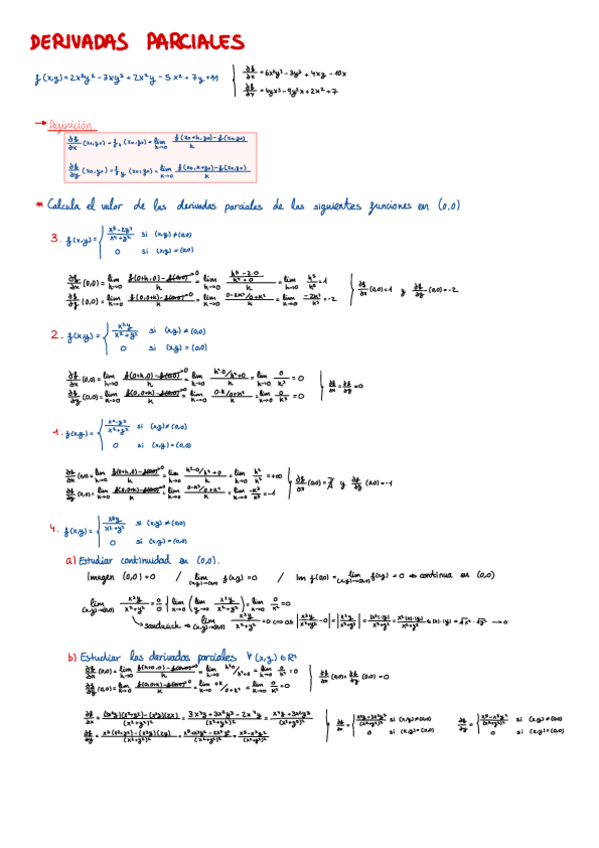 DERIVADAS PARCIALES
f(x,y) = 2x³y² - 3xy³ + 2x²y - 5x² + 7y + 11 { ∂f/∂x = 6x²y² - 3y³ + 4xy - 10x
∂f/∂y = 4yx³ - 9y²x + 2x² + 7
→ Definición
∂f/∂x (x₀,y₀) = fₓ (x₀,y₀) = lim h→0 f(x₀+h,y₀) - f(x₀,y₀) / h
∂f/∂y (x₀,y₀) = f_y (x₀,y₀) = lim k→0 f(x₀,k+y₀) - f(x₀,y₀) / k
* Calcula el valor de las derivadas parciales de las siguientes funciones en (0,0)
3. f(x,y) = { x³ - 2y³ / x² + y² si (x,y) ≠ (0,0)
0 si (x,y) = (0,0)
∂f/∂x (0,0) = lim h→0 f(0+h,0) - f(0,0) / h = lim h→0 = lim h→0 h³/h³ = 1
∂f/∂y (0,0) = lim k→0 f(0,0+k) - f(0,0) / k = lim k→0 0-2k³/0+k² / k = lim k→0 -2k³/k³ = -2
{ ∂f/∂x (0,0) = 1 y ∂f/∂y (0,0) = -2
2. f(x,y) = { x²y / x² + y² si (x,y) ≠ (0,0)
0 si (x,y) = (0,0)
∂f/∂x (0,0) = lim h→0 f(0+h,0) - f(0,0) / h = lim h→0 h²·0/h²+0 / h = lim h→0 0/h³ = 0
∂f/∂y (0,0) = lim k→0 f(0,0+k) - f(0,0) / k = lim k→0 0·k/0+k² / k = lim k→0 0/k³ = 0
{ ∂f/∂x = ∂f/∂y = 0
1. f(x,y) = { si (x,y) ≠ (0,0)
0 si (x,y) = (0,0)
∂f/∂x (0,0) = lim h→0 f(0+h,0) - f(0,0) / h = lim h→0 = lim h→0 = +∞
∂f/∂y (0,0) = lim k→0 f(0,0+k) - f(0,0) / k = lim k→0 0-k³/0+k² / k = lim k→0 -k³/k³ = -1
{ ∂f/∂x (0,0) = ∄ y ∂f/∂y (0,0) = -1
4. f(x,y) = { x³y / x² + y² si (x,y) ≠ (0,0)
0 si (x,y) = (0,0)
a) Estudiar continuidad en (0,0).
Imagen (0,0) = 0 / lim (x,y)→(0,0) f(x,y) = 0 / Im f(0,0) = lim (x,y)→(0,0) f(x,y) = 0 ⇒ continua en (0,0)
lim (x,y)→(0,0) x³y / x²+y² = 0/0 | lim x→0 ( lim y→0 x³y / x²+y² ) = lim x→0 0/x² = 0
sandwich ⇒ lim (x,y)→(0,0) x³y / x²+y² = 0
b) Estudiar las derivadas parciales ∀ (x,y) ∈ R²
∂f/∂x (0,0) = lim h→0 f(h+0,0) - f(0,0) / h = lim h→0 = lim h→0 = 0
∂f/∂y (0,0) = lim k→0 f(0,0+k) - f(0,0) / k = lim k→0 = lim k→0 = 0
{ ∂f/∂x (0,0) = ∂f/∂y (0,0) = 0
∂f/∂x = (3x²y)(x²+y²) - (x³y)(2x) / (x²+y²)² = 3x⁴y + 3x²y³ - 2x⁴y / (x²+y²)² = x⁴y + 3x²y³ / (x²+y²)²
∂f/∂y = x³(x²+y²) - (x³y)(2y) / (x²+y²)² = x⁵ + x³y² - 2x³y² / (x²+y²)² = x⁵ - x³y² / (x²+y²)²
∂f/∂x = { x⁴y + 3x²y³ / (x²+y²)² si (x,y) ≠ (0,0)
0 si (x,y) = (0,0)
∂f/∂y = { x⁵ - x³y² / (x²+y²)² si (x,y) ≠ (0,0)
0 si (x,y) = (0,0)